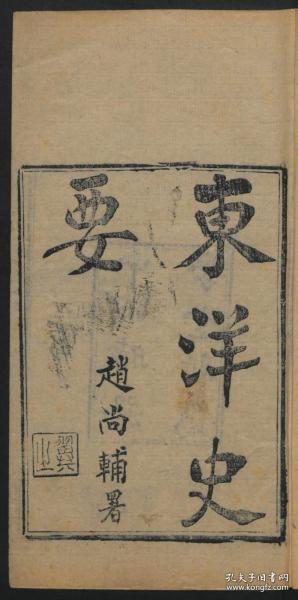 東洋史
要
趙尚輔署
孔夫子旧书网
www.kongfz.com